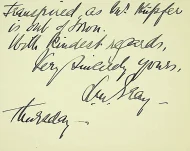 transpired, as Mr Kupfer
is out of town.
With kindest regards,
Very sincerely yours,
Thursday